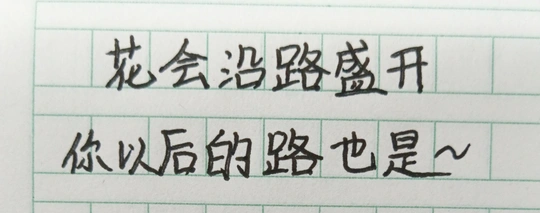 花会沿路盛开
你以后的路也是~